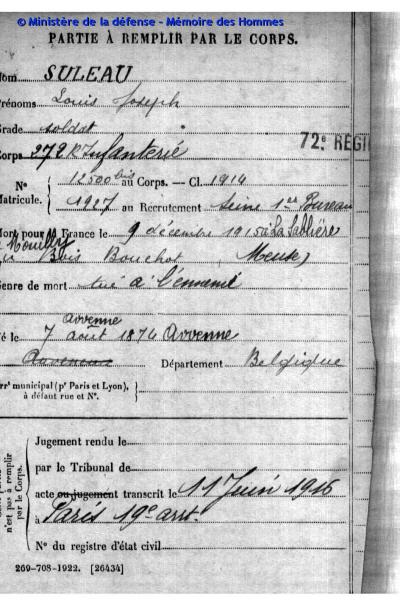 © Ministère de la défense - Mémoire des Hommes
PARTIE À REMPLIR PAR LE CORPS.
Nom SULEAU
Prénoms Louis Joseph
Grade soldat
Corps 272 R Infanterie
72e RÉGI
N° 12500 bis au Corps. — Cl. 1914
Matricule. 1927 au Recrutement Seine 1er Bureau
Mort pour la France le 9 décembre 1915 à La Sablière
Mouilly
Bois Bouchot (Meuse)
Genre de mort tué à l'ennemi
Avvenne
Né le 7 août 1874 Avvenne
Département Belgique
arrt municipal (pr Paris et Lyon),
à défaut rue et N°.
Jugement rendu le
par le Tribunal de
acte ou jugement transcrit le 11 Juin 1916
à Paris 19e arrt.
N° du registre d'état civil
n'est pas à remplir
par le Corps.
269-708-1922. [26434]